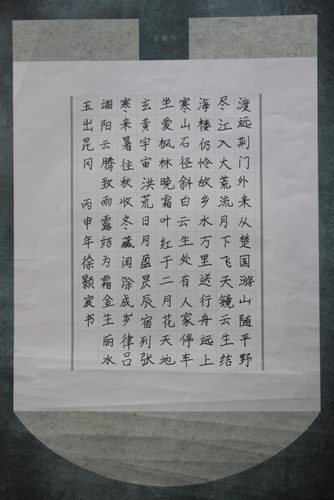 渡远荆门外来从楚国游山随平野
尽江入大荒流月下飞天镜云生结
海楼仍怜故乡水万里送行舟远上
寒山石径斜白云生处有人家停车
坐爱枫林晚霜叶红于二月花天地
玄黄宇宙洪荒日月盈昃辰宿列张
寒来暑往秋收冬藏闰馀成岁律吕
调阳云腾致雨露结为霜金生丽水
玉出昆冈 丙申年徐颢书